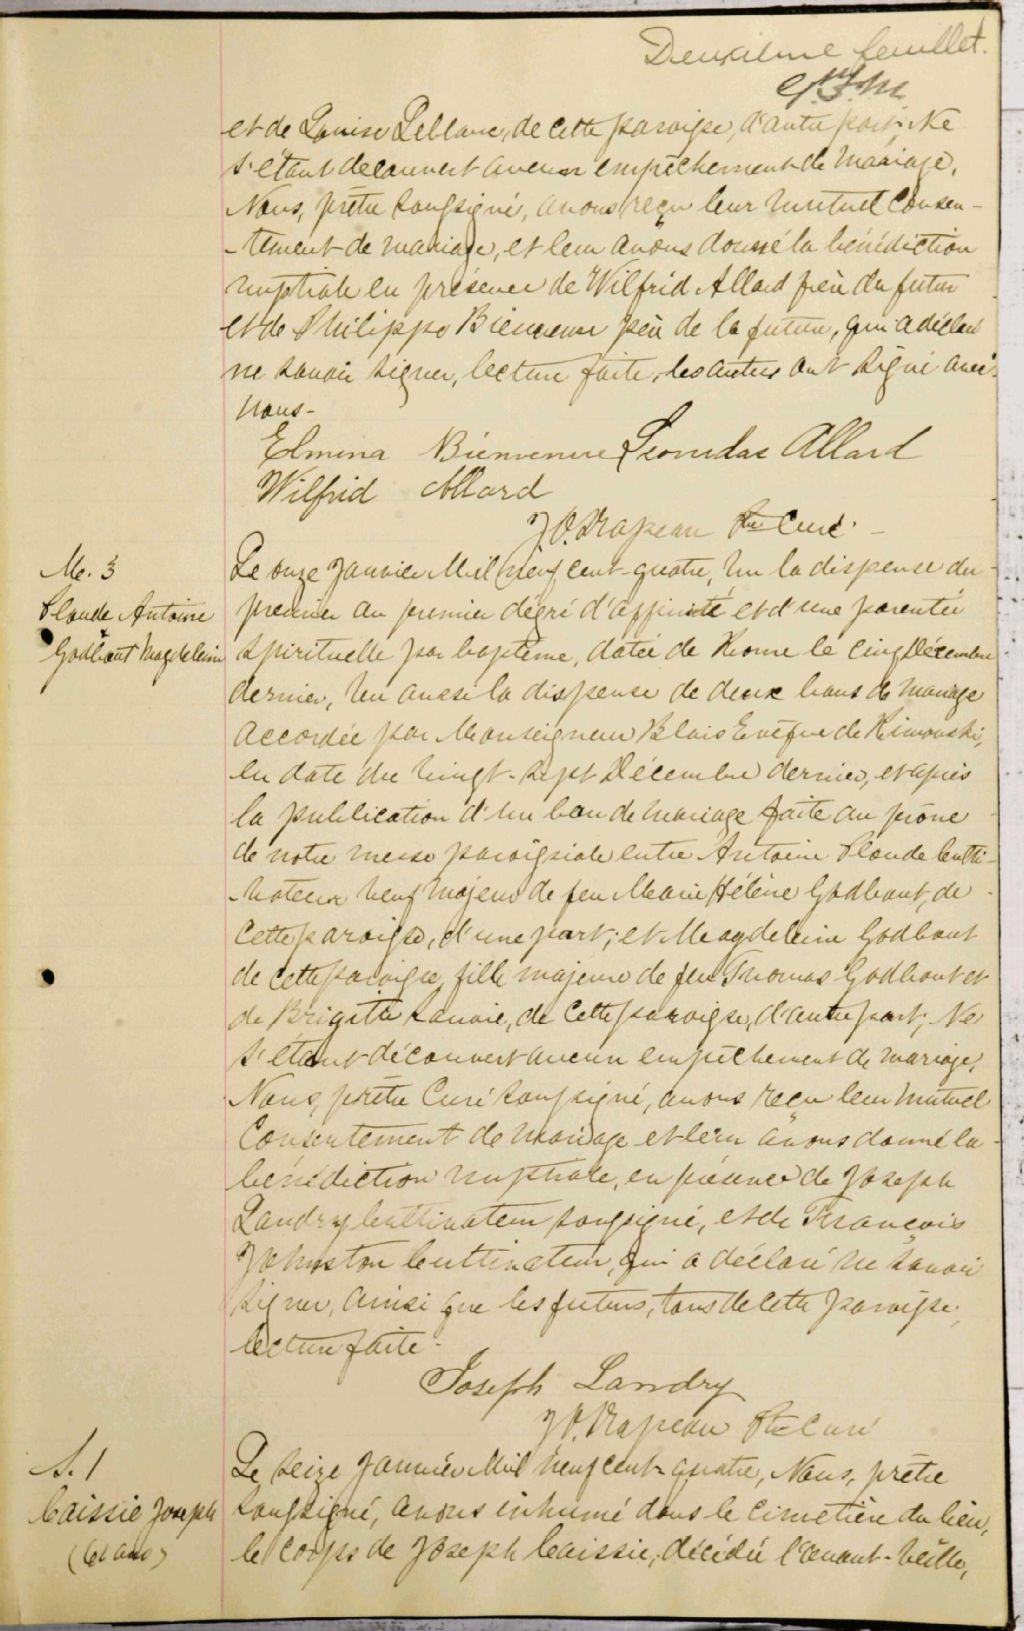 Deuxième feuillet.
et de Louise Leblanc, de cette paroisse, d'autre part; Ne
s'étant découvert aucun empêchement de mariage,
Nous, prêtre soussigné, avons reçu leur mutuel consen-
-tement de mariage, et leur avons donné la bénédiction
nuptiale en présence de Wilfrid Allard frère du futur
et de Philippe Bienvenu père de la future, qui a déclaré
ne savoir signer, lecture faite, les autres ont signé avec
nous-
Elmina Bienvenue Leonidas Allard
Wilfrid Allard
J.O. Drapeau Ptre Curé.
M. 3
Plaude Antoine
&
Godbout Magdeleine
Le onze Janvier Mil neuf cent-quatre, Vu la dispense du
premier au premier dégré d'affinité et d'une parentée
spirituelle par baptême, datée de Rome le cinq Décembre
dernier, Vu aussi la dispense de deux bans de mariage
accordée par Monseigneur Blais Evêque de Rimouski,
en date du vingt-sept Décembre dernier, et après
la publication d'un ban de mariage faite au prône
de notre messe paroissiale entre Antoine Plaude Culti-
-vateur veuf majeur de feu Marie Hélène Godbout, de
cette paroisse, d'une part; et Magdeleine Godbout
de cette paroisse, fille majeure de feu Thomas Godbout et
de Brigitte Savoie, de cette paroisse, d'autre part; Ne
s'étant découvert aucun empêchement de mariage,
Nous, prêtre Curé soussigné, avons reçu leur mutuel
Consentement de mariage et leur avons donné la
bénédiction nuptiale, en présence de Joseph
Landry Cultivateur soussigné, et de François
Johnston Cultivateur, qui a déclaré ne savoir
signer, ainsi que les futurs, tous de cette paroisse,
lecture faite.
Joseph Landry
J.O. Drapeau Ptre Curé
S. 1
Caissie Joseph
(61 ans)
Le seize Janvier Mil neuf cent-quatre, Nous, prêtre
soussigné, avons inhumé dans le cimetière du lieu,
le corps de Joseph Caissie, décédé l'avant-veille,